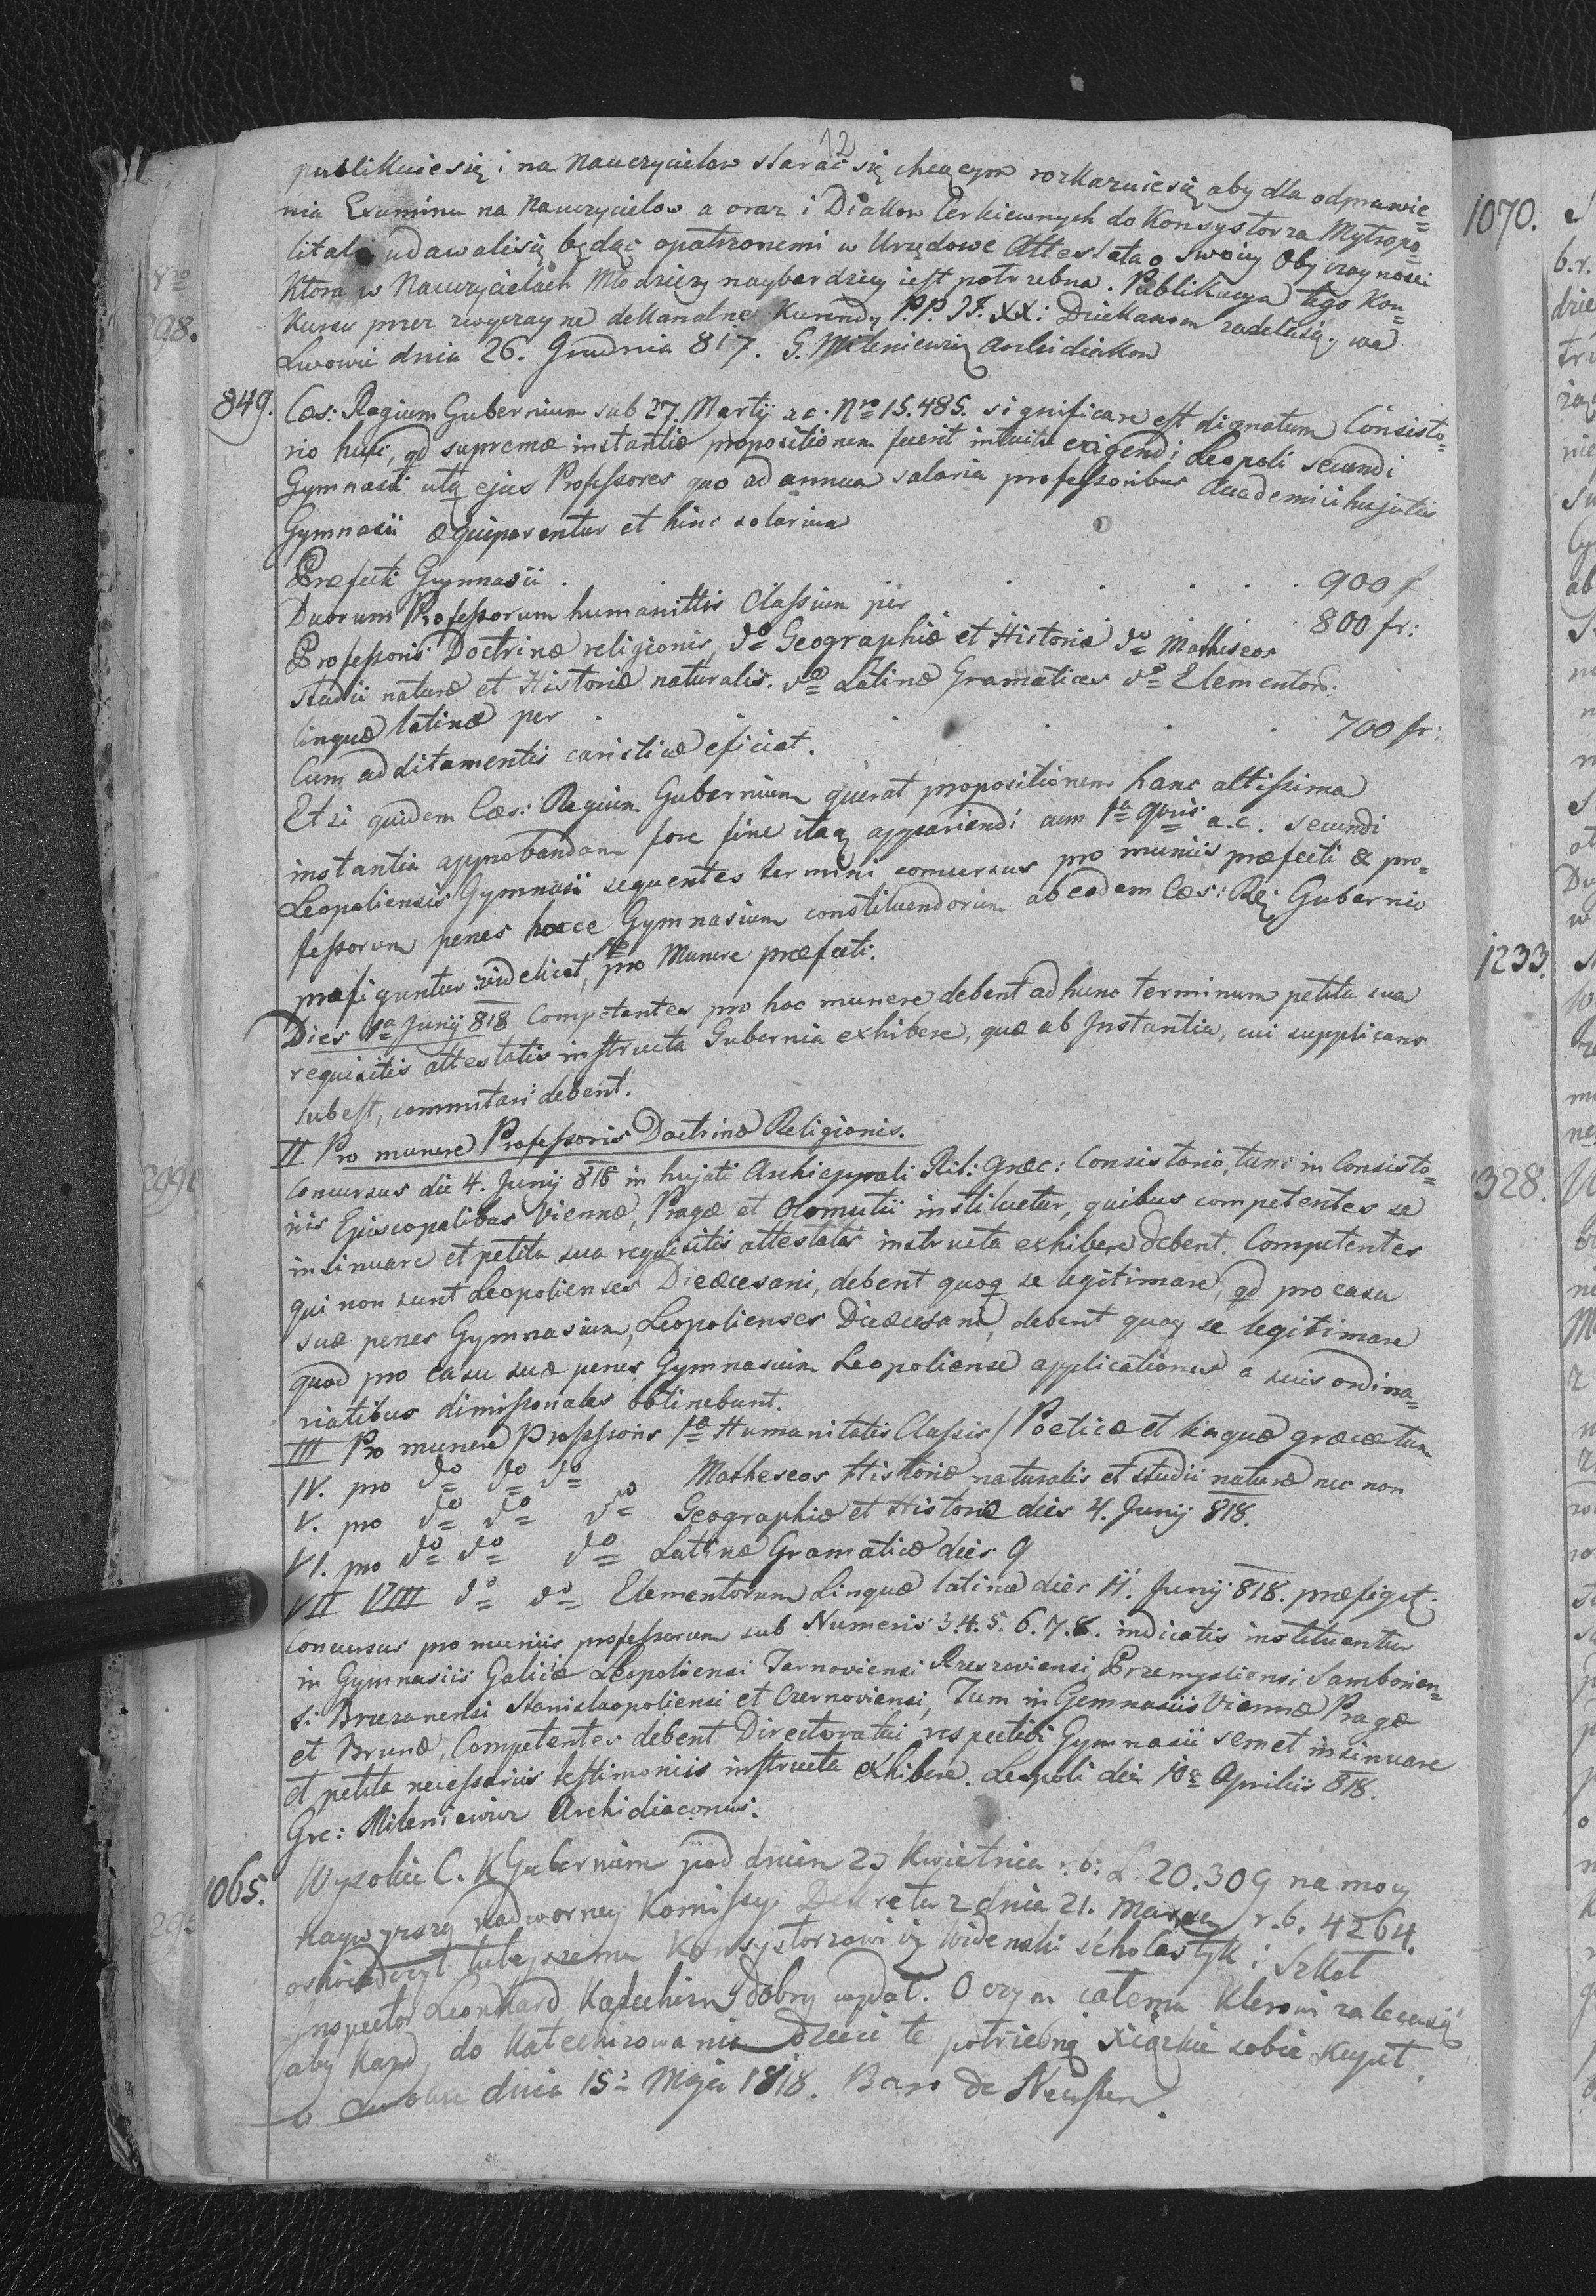 12
publikuie się i na Nauczycielow starać się chcącym rozkazuie się aby dla odprawie=
nia Examinu na Nauczycielow a oraz i Diakow Cerkiewnych do Konsystorza Mytropo=
lital. udawali się będąc opatrzonemi w Urzędowe Attestata o swoiey Obyczaynosci
Która w Nauczycielach Młodzieży naybardziey iest potrzebna. Publikacya tego Kon=
kursu przez zwyczayne dekanalne Kurendy P.P. JJ. XX: Dziekanom zaleca się. we
Lwowie dnia 26. Grudnia 817. G. Mileniewicz Archidiakon
849. Cæs: Regium Gubernium sub 27. Martij a.c. Nro 15.485. significare est dignatum Consisto=
rio huic, qd supremæ instantiæ propositionem fecerit intuitu erigendi Leopoli secundi
Gymnasii utq ejus Professores quo ad annua salaria professoribus Academici hujatis
Gymnasii æquiparentur et hinc solarium
Præfecti Gymnasii . . . . . . 900 f
Duorum Professorum humanittis Classium per . . . 800 fr:
Professoris Doctrinæ religionis, do Geographiæ et Historiæ do Matheseos
studii naturæ et Historiæ naturalis. do Latinæ Gramatices do Elementor.
linguæ latinæ per . . . . . 700 fr:
Cum additamentis caristiæ eficiat.
Et si quidem Cæs: Regium Gubernium querat propositionem hanc altissima
instantia approbandam fore fine itaq apperiendi cum 1a 9bris a.c. secundi
Leopoliensis Gymnasii sequentes termini concursus pro muniis præfecti & pro=
fessorum penes hocce Gymnasium constituendorum ab eodem Cæs: Reg Gubernio
præfiguntur videlicet, 1o pro Munere præfecti.
Dies 1a Junij 818 Competentes pro hoc munere debent ad hunc terminum petita sua
requisitis attestatis instructa Gubernia exhibere, quæ ab Instantia, cui supplicans
subest, commitari debent.
II Pro munere Professoris Doctrinæ Religionis.
Concursus die 4. Junij 818 in hujati Archieppali Rit: Græc: Consistorio, tum in Consisto=
riis Episcopalibus Viennæ, Pragæ et Olomutii instituetur, quibus competentes se
insinuare et petita sua requisitis attestatis instructa exhibere debent. Competentes
qui non sunt Leopolienses Diœcesani, debent quoq se legitimare, qd pro casu
suæ penes Gymnasium, Leopolienses Diœcesani, debent quoq se legitimare
quod pro casu suæ penes Gymnasium Leopoliense applicationis a suis ordina=
riatibus dimissionales obtinebunt.
III Pro munere Professoris 1æ Humanitatis Classis / Poeticæ et linguæ græcæ tum
IV. pro do do do Matheseos Historiæ naturalis et studii naturæ nec non
V. pro do do do Geographiæ et Historiæ dies 4. Junij 818.
VI. pro do do do Latinæ Gramaticæ dies 9
VII VIII do do Elementorum Linguæ latinæ dies 11. Junij 818. præfigit.
Concursus pro muniis professorum sub Numeris 3.4.5.6.7.8. indicatis instituentur
in Gymnasiis Galiciæ Leopoliensi Tarnoviensi Rzeszoviensi Przemysliensi Samborien=
si Brzezanensi Stanislaopoliensi et Czernoviensi, Tum in Gemnasiis Viennæ Pragæ
et Brunæ, Competentes debent Directoratui respectivi Gymnasii semet insinuare
et petita necessariis testimoniis instructa exhibere. Leopoli die 10a Aprilis 818.
Gre: Mileniewicz Archidiaconus.
1065. Wysokie C. K Gubernium pod dniem 23 Kwietnia r.b. L. 20.309 na mocy
Naywyzszey Nadworney Komissyi Dekretu z dnia 21. Marca r.b. 4264.
oswiadczył tuteyszemu Konsystorzowi iż Widenski scholastyk i Szkoł
Inspector Leonhard Katechizm dobry wydał. O czym całemu Klerowi zaleca się
aby Kazdy do Katechizowania Dzieci te potrzebną Xiązkie sobie Kupił.
w Lwowie dnia 15. Maja 1818. Baro de Neusteru.
1070.
1233.
1328.